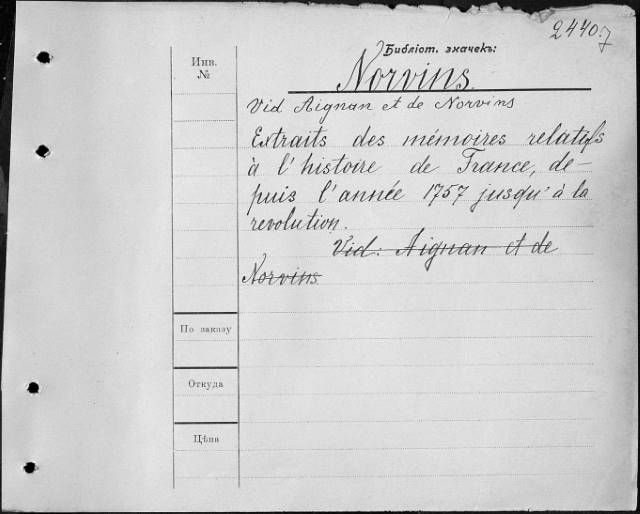 24407
Библіот. значекъ:
Инв.
№
Norvins
Vid Aignan et de Norvins
Extraits des mémoires relatifs
à l'histoire de France, de-
puis l'année 1757 jusqu'à la
revolution.
Vid: Aignan et de
Norvins
По заказу
Откуда
Цѣна